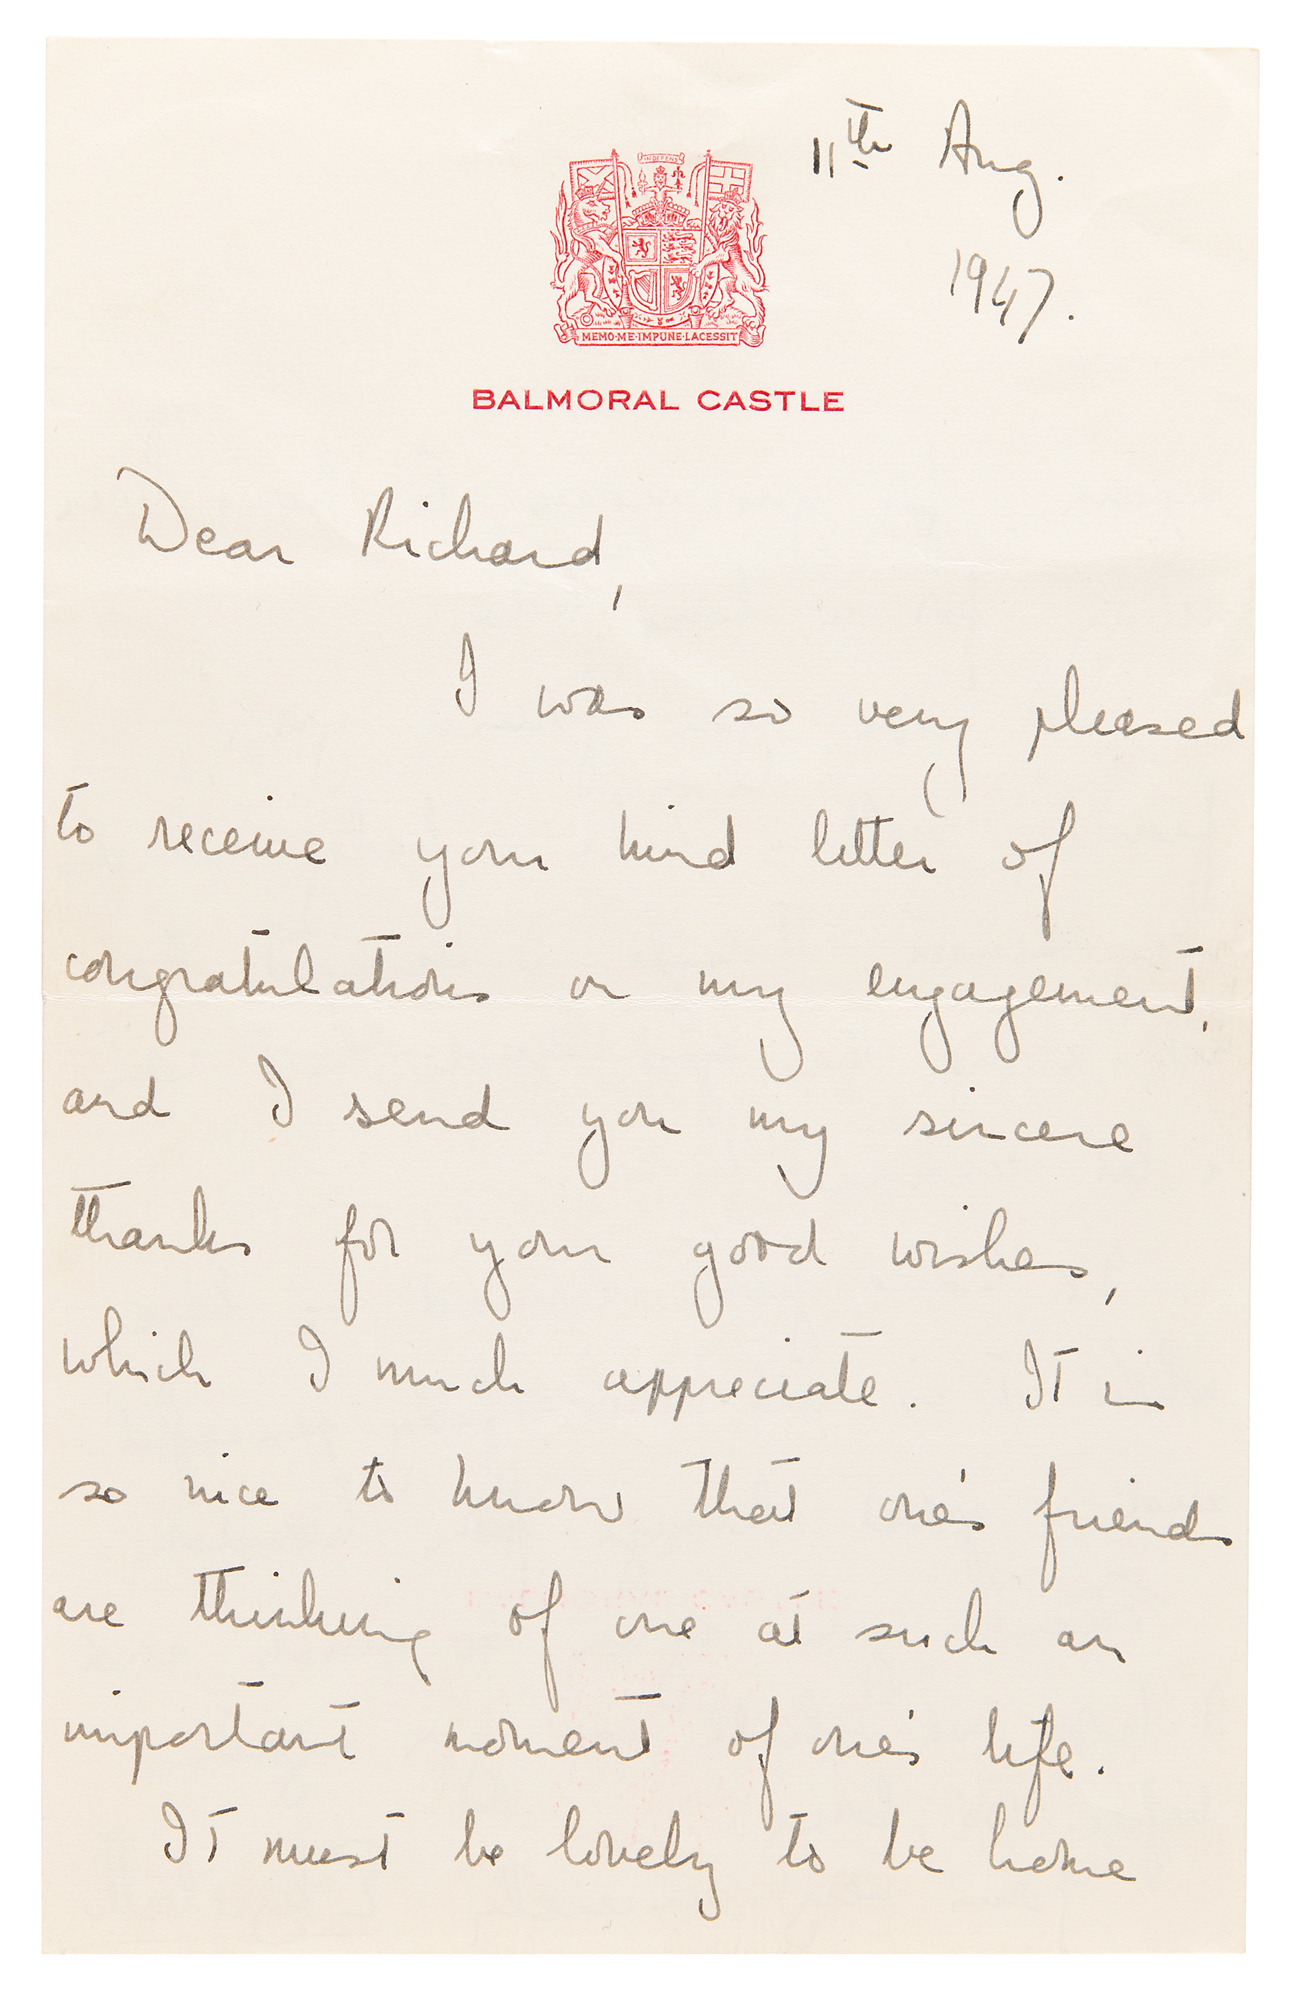 11th Aug.
1947.
IN DEFENS
NEMO·ME·IMPUNE·LACESSIT
BALMORAL CASTLE
Dear Richard,
I was so very pleased
to receive your kind letter of
congratulations on my engagement,
and I send you my sincere
thanks for your good wishes,
which I much appreciate. It is
so nice to know that one's friends
are thinking of one at such an
important moment of one's life.
It must be lovely to be home